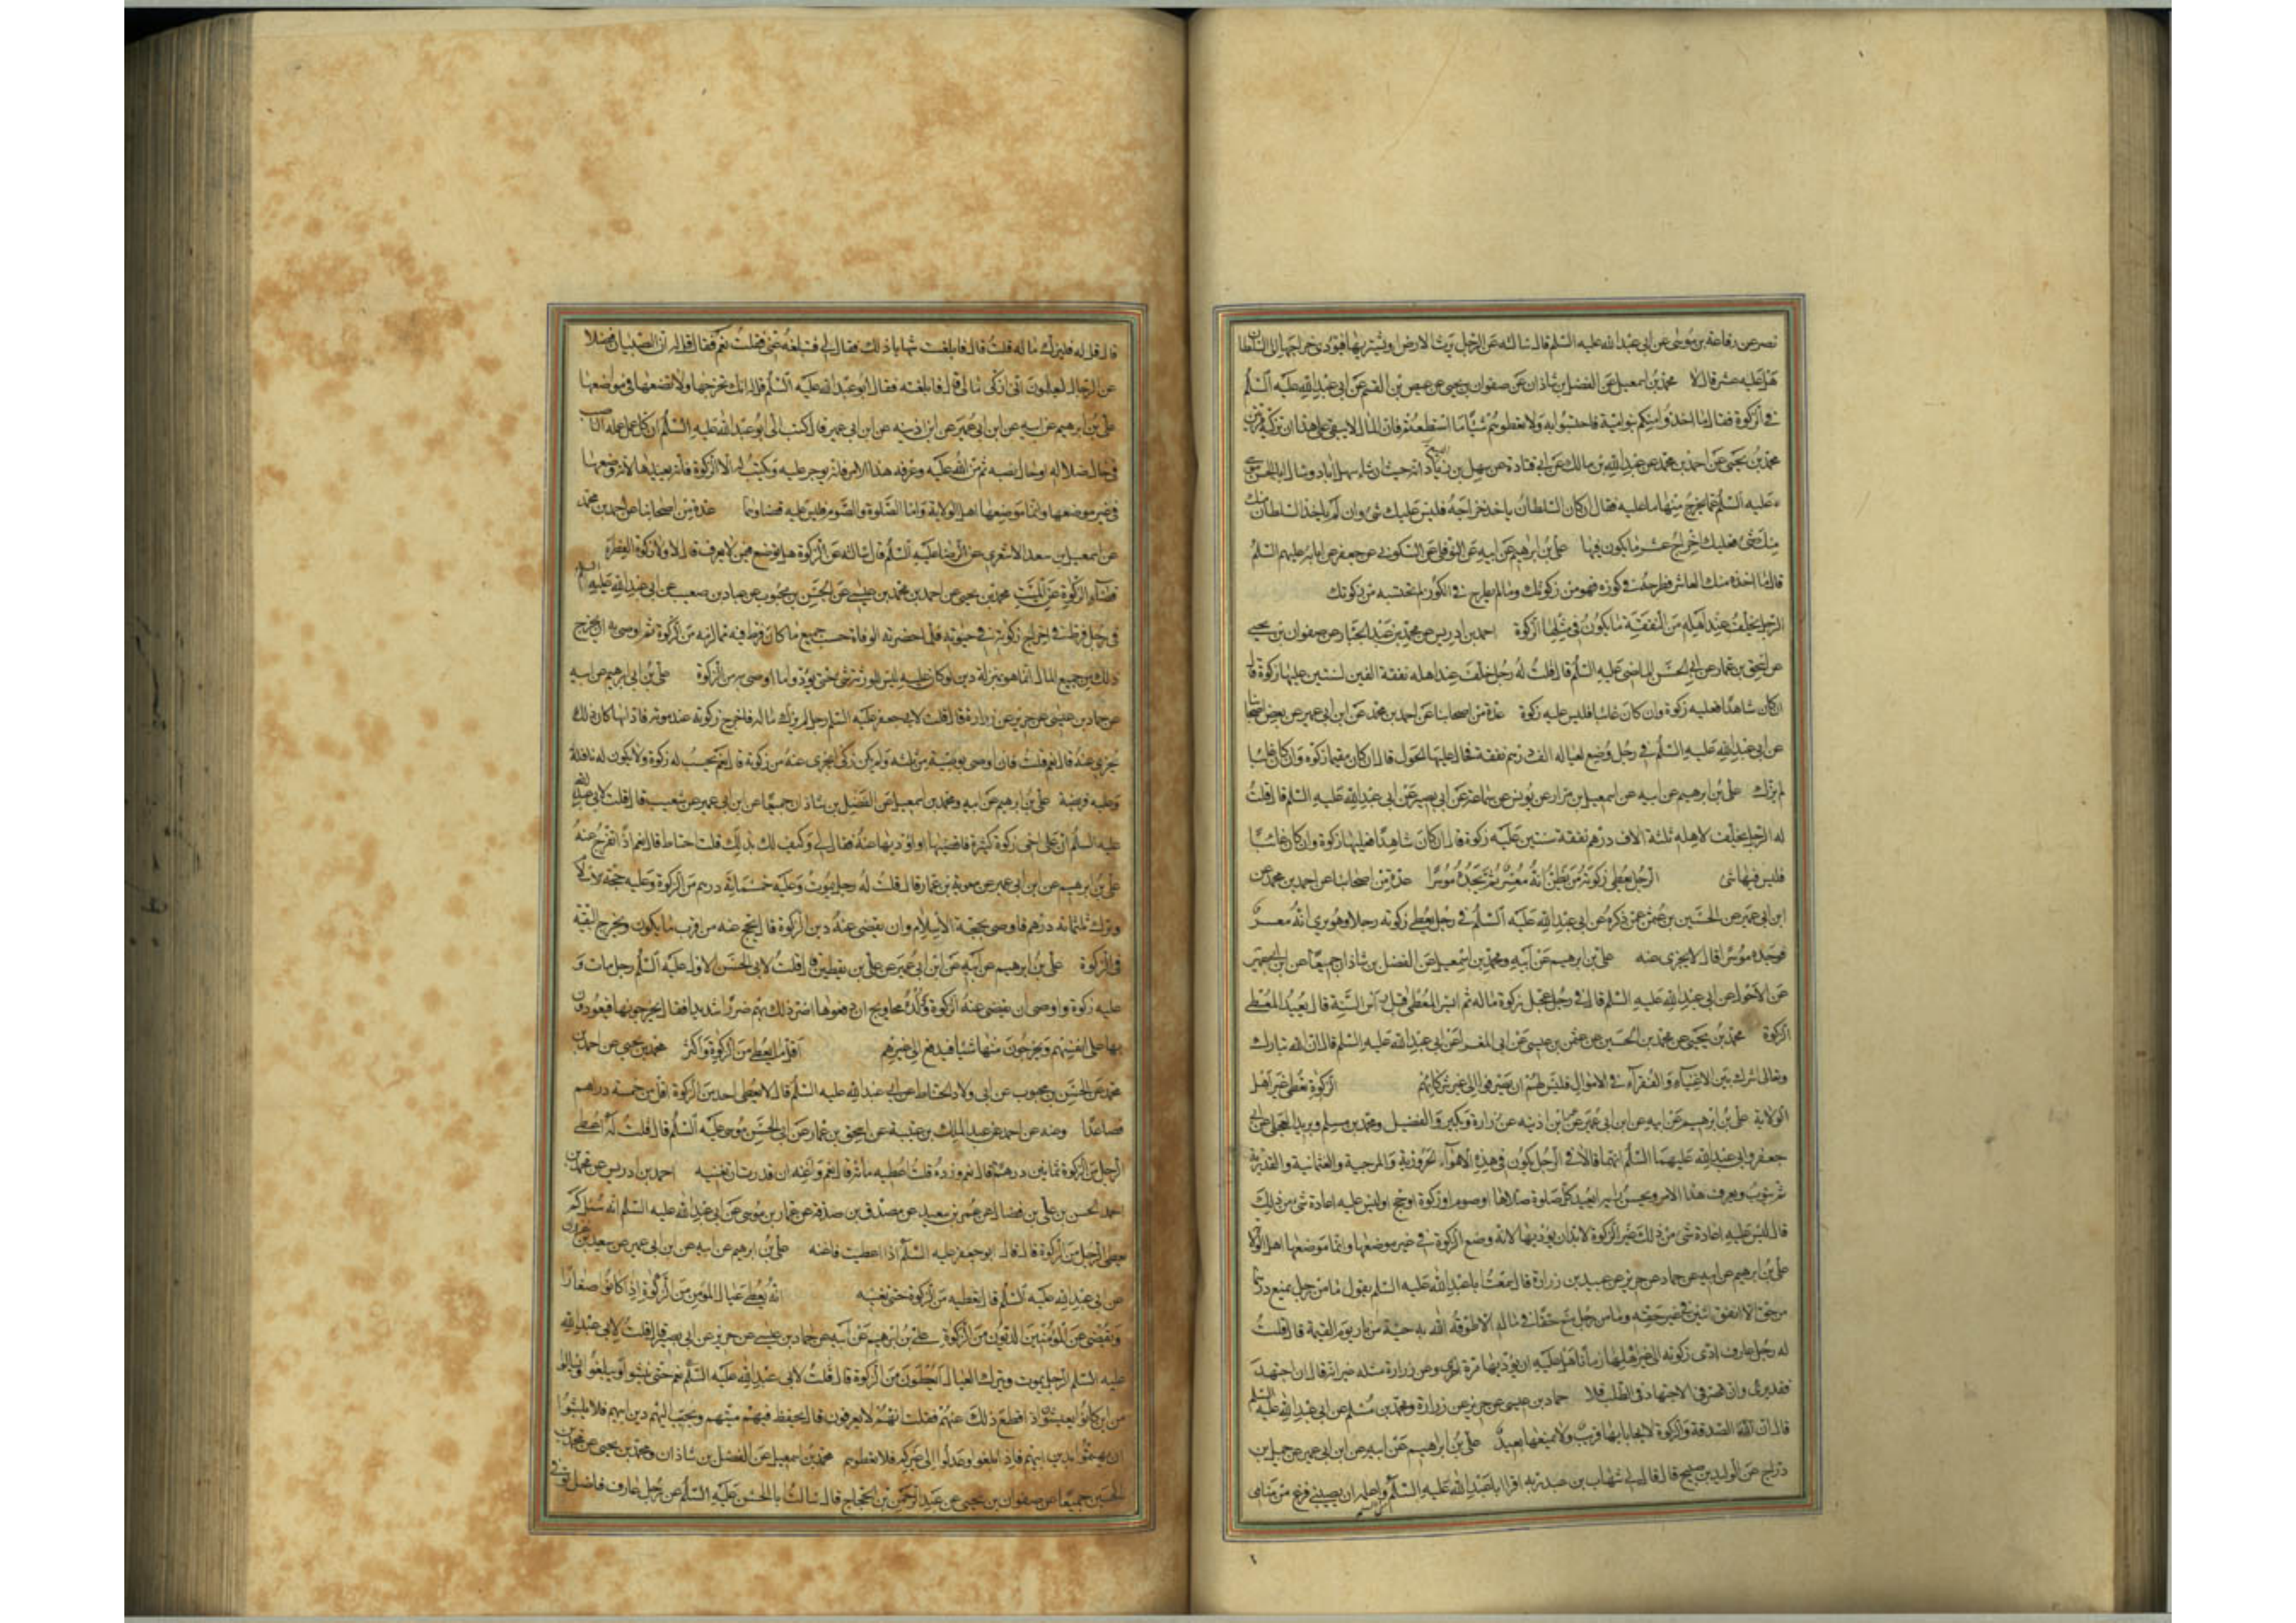 نصر عن رفاعة بن موسى عن ابى عبد الله عليه السلم قال سالته عن الرجل يرث الارض او يشتريها فيؤدى خراجها الى السلطان
هل عليه عشر قال لا محمد بن اسمعيل عن الفضل بن شاذان عن صفوان بن يحيى عن عيص بن القسم عن ابى عبد الله عليه السلم
فى الزكوة فقال ما اخذوا منكم بنو امية فاحتسبوا به ولا تعطوهم شيئا ما استطعتم فان المال لا يبقى على هذا ان تزكيه مرتين
محمد بن يحيى عن احمد بن محمد عن عبد الله بن مالك عن ابى قتادة عن سهل بن اليسع انه حيث انشا سهل اباد وسال ابا الحسن موسى
عليه السلم عما يخرج منها ما عليه فقال ان كان السلطان ياخذ خراجه فليس عليك شئ وان لم ياخذ السلطان
منك شئ فعليك اخراج عشر ما يكون فيها على بن ابرهيم عن ابيه عن النوفلى عن السكونى عن جعفر عن ابائه عليهم السلم
قال ما اخذه منك العاشر فطرحه فى كوزه فهو من زكوتك وما لم يطرح فى الكوز فلا تحتسبه من زكوتك
الرجل يخلف عند اهله من النفقة ما يكون فى مثلها الزكوة احمد بن ادريس عن محمد بن عبد الجبار عن صفوان بن يحيى
عن اسحق بن عمار عن ابى الحسن الماضى عليه السلم قال قلت له رجل خلف عند اهله نفقة الفين لسنتين عليها زكوة قال
ان كان شاهدا فعليه زكوة وان كان غائبا فليس عليه زكوة عدة من اصحابنا عن احمد بن محمد عن ابن ابى عمير عن بعض اصحابنا
عن ابى عبد الله عليه السلم فى رجل وضع لعياله الف درهم نفقة فحال عليها الحول قال ان كان مقيما زكاه وان كان غائبا
لم يزك على بن ابرهيم عن ابيه عن اسمعيل بن مرار عن يونس عن سماعة عن ابى بصير عن ابى عبد الله عليه السلم قال قلت
له الرجل يخلف لاهله ثلثة الاف درهم نفقة سنتين عليه زكوة قال ان كان شاهدا فعليها زكوة وان كان غائبا
فليس فيها شئ الرجل يعطى زكوته من يظن انه معسر ثم يجده موسرا عدة من اصحابنا عن احمد بن محمد عن
ابن ابى عمير عن الحسين بن عثمن عمن ذكره عن ابى عبد الله عليه السلم فى رجل يعطى زكوته رجلا وهو يرى انه معسر
فوجده موسرا قال لا يجزى عنه على بن ابرهيم عن ابيه ومحمد بن اسمعيل عن الفضل بن شاذان جميعا عن ابن ابى عمير
عن الاحول عن ابى عبد الله عليه السلم فى رجل عجل زكوة ماله ثم ايسر المعطى قبل راس السنة قال يعيد المعطى
الزكوة محمد بن يحيى عن محمد بن الحسين عن عثمن بن عيسى عن ابى المغرا عن ابى عبد الله عليه السلم قال ان الله تبارك
وتعالى اشرك بين الاغنياء والفقراء فى الاموال فليس لهم ان يصرفوا الى غير شركائهم الزكوة تعطى غير اهل
الولاية على بن ابرهيم عن ابيه عن ابن ابى عمير عن ابن اذينه عن زرارة وبكير والفضيل ومحمد بن مسلم وبريد العجلى عن ابى
جعفر وابى عبد الله عليهما السلم انهما قالا فى الرجل يكون فى هذه الاهواء الحرورية والمرجية والعثمانية والقدرية
ثم يتوب ويعرف هذا الامر ويحسن رايه ايعيد كل صلوة صلاها او صوم او زكوة او حج او ليس عليه اعادة شئ من ذلك
قال ليس عليه اعادة شئ من ذلك غير الزكوة لابد ان يؤديها لانه وضع الزكوة فى غير موضعها وانما موضعها اهل الولاية
على بن ابرهيم عن ابيه عن حماد عن حريز عن عبيد بن زرارة قال سمعت ابا عبد الله عليه السلم يقول ما من رجل يمنع درهما
من حق الا انفق اثنين فى غير حقه وما من رجل منع حقا فى ماله الا طوقه الله به حية من نار يوم القيمة قال قلت
له رجل عارف ادى زكوته الى غير اهلها زمانا هل عليه ان يؤديها
فقد برئ وان قصر فى الاجتهاد فى الطلب فلا حماد بن عيسى عن حريز عن زرارة ومحمد بن مسلم عن ابى عبد الله عليه السلم
قال ان الصدقة والزكوة لا يحابا بها قريب ولا يمنعها بعيد على بن ابراهيم عن ابيه عن ابن ابى عمير عن جميل بن
دراج عن الوليد بن صبيح قال قال لى شهاب بن عبد ربه اقرا ابا عبد الله عليه السلم واعلمه ان يصيبنى فزع من منامى
قال قل له فليزك ماله قلت قال فابلغت شهابا ذلك فقال لى فتبلغه عنى فقلت نعم فقال قل له ان الصبيان فضلا
عن الرجال ليعلمون انى ازكى مالى قال فابلغته فقال ابو عبد الله عليه السلم قل له انك تخرجها ولا تضعها فى مواضعها
على بن ابرهيم عن ابيه عن ابن ابى عمير عن ابن اذينه عن ابن ابى عمير قال كتب الى ابو عبد الله عليه السلم ان كل عمل عمله الناصب
فى حال ضلاله او حال نصبه ثم من الله عليه وعرفه هذا الامر فانه يوجر عليه ويكتب له الا الزكوة فانه يعيدها لانه وضعها
فى غير موضعها وانما موضعها اهل الولاية واما الصلوة والصوم فليس عليه قضاوهما عدة من اصحابنا عن احمد بن محمد
عن اسمعيل بن سعد الاشعرى عن الرضا عليه السلم قال سالته عن الزكوة هل توضع فيمن لا يعرف قال لا ولا زكوة الفطرة
قضاء الزكوة عن الميت محمد بن يحيى عن احمد بن محمد بن عيسى عن الحسن بن محبوب عن عباد بن صهيب عن ابى عبد الله عليه السلم
فى رجل فرط فى اخراج زكوته فى حيوته فلما حضرته الوفاة حسب جميع ما كان فرط فيه مما لزمه من الزكوة ثم اوصى به ان يخرج
ذلك من جميع المال انما هو بمنزلة دين لو كان عليه ليس للورثة شئ حتى يؤدوا ما اوصى به من الزكوة على بن ابرهيم عن ابيه
عن حماد بن عيسى عن حريز عن زرارة قال قلت لابى جعفر عليه السلم رجل لم يزك ماله فاخرج زكوته عند موته فاداها كان ذلك
يجزى عنه قال نعم قلت فان اوصى بوصية من ثلثه ولم يكن زكى ايجزى عنه من زكوته قال نعم تحسب له زكوة ولا يكون له نافلة
وعليه فريضة على بن ابرهيم عن ابيه ومحمد بن اسمعيل عن الفضل بن شاذان جميعا عن ابن ابى عمير عن شعيب قال قلت لابى عبد الله
عليه السلم ان على اخى زكوة كثيرة فاقضيها او اؤديها عنه فقال لى وكيف لك بذلك قلت احتاط قال نعم اذا تفرج عنه
على بن ابرهيم عن ابن ابى عمير عن معوية بن عمار قال قلت له رجل يموت وعليه خمسمائة درهم من الزكوة وعليه حجة الاسلام
وترك ثلثمائة درهم فاوصى بحجة الاسلام وان يقضى عنه دين الزكوة قال يحج عنه من اقرب ما يكون ويخرج البقية
فى الزكوة على بن ابرهيم عن ابيه عن ابن ابى عمير عن على بن يقطين قال قلت لابى الحسن الاول عليه السلم رجل مات و
عليه زكوة واوصى ان يقضى عنه الزكوة وولده محاويج ان دفعوها اضر ذلك بهم ضررا شديدا فقال يخرجونها فيعودون
بها على انفسهم ويخرجون منها شيئا فيدفع الى غيرهم اقل ما يعطى من الزكوة واكثر محمد بن يحيى عن احمد بن
محمد عن الحسن بن محبوب عن ابى ولاد الحناط عن ابى عبد الله عليه السلم قال لا يعطى احد من الزكوة اقل من خمسة دراهم
فصاعدا وعنه عن احمد عن عبد الملك بن عتبة عن اسحق بن عمار عن ابى الحسن موسى عليه السلم قال قلت له اعطى
الرجل من الزكوة ثمانين درهما قال نعم وزده قلت اعطيه مائة قال نعم واغنه ان قدرت ان تغنيه احمد بن ادريس عن محمد بن
احمد الحسن بن على بن فضال عن عمر بن سعيد عن مصدق بن صدقة عن عمار بن موسى عن ابى عبد الله عليه السلم انه سئل كم
يعطى الرجل من الزكوة قال قال ابو جعفر عليه السلم اذا اعطيت فاغنه على بن ابرهيم عن ابيه عن ابن ابى عمير عن سعيد بن غزوان
عن ابى عبد الله عليه السلم قال تعطيه من الزكوة حتى تغنيه انه يعطى عيال المومن من الزكوة اذا كانوا صغارا
ويقضى عن المؤمنين الديون من الزكوة على بن ابرهيم عن ابيه عن حماد بن عيسى عن حريز عن ابى بصير قال قلت لابى عبد الله
عليه السلم الرجل يموت ويترك العيال ايعطون من الزكوة قال نعم حتى ينشوا ويبلغوا ويسالوا
من اين كانوا يعيشون اذا قطع ذلك عنهم فقلت انهم لا يعرفون قال يحفظ فيهم ميتهم ويحبب اليهم دين ابيهم فلا يلبثوا
ان يهتموا بدين ابيهم فاذا بلغوا وعدلوا الى غيركم فلا تعطوهم محمد بن اسمعيل عن الفضل بن شاذان ومحمد بن يحيى عن محمد بن
الحسين جميعا عن صفوان بن يحيى عن عبد الرحمن بن الحجاج قال سالت ابا الحسن عليه السلم عن رجل عارف فاضل توفى